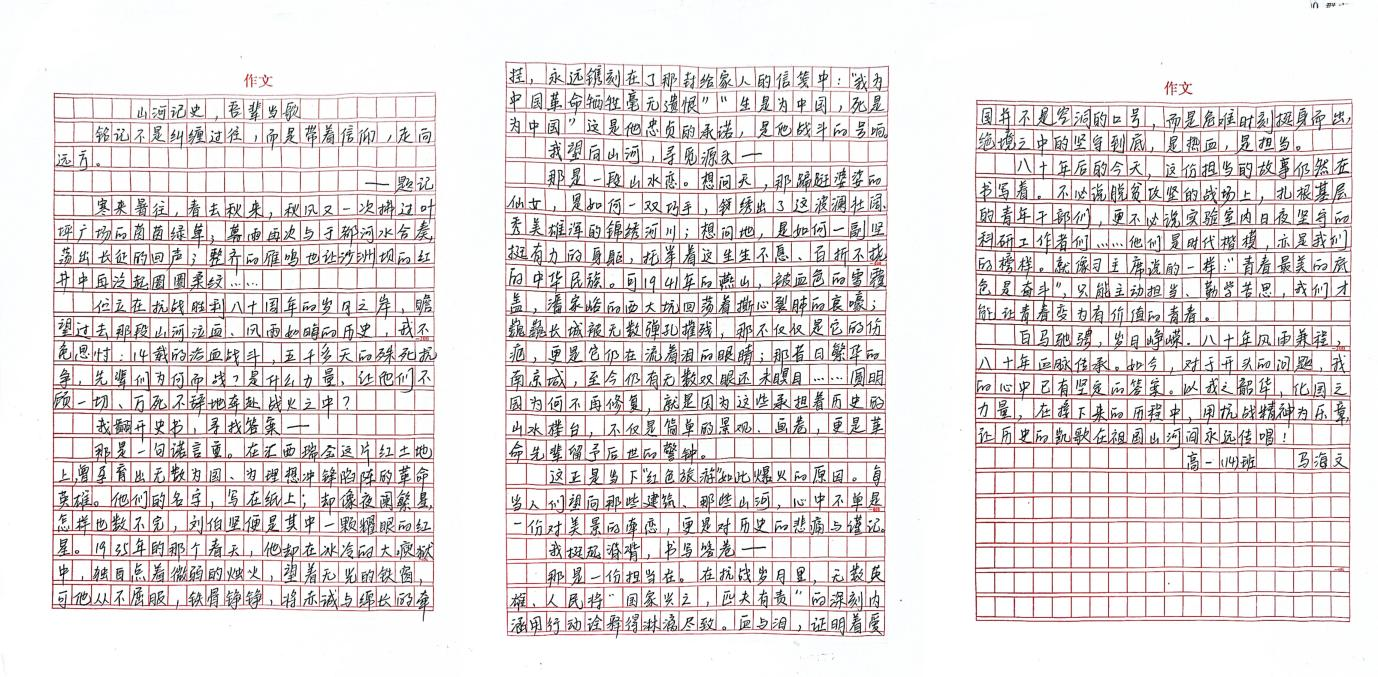 作文
山河记史，吾辈当歌
铭记不是纠缠过往，而是带着信仰，走向
远方。
——题记
寒来暑往，春去秋来，秋风又一次拂过叶
坪广场的茵茵绿草；幕雨再次与于都河水合奏，
荡出长征的回声；整齐的雁鸣也让沙洲坝的红
井中再泛起圈圈柔纹……
伫立在抗战胜利八十周年的岁月之岸，瞻
望过去那段山河泣血、风雨如晦的历史，我不
免思忖：14载的浴血战斗，五千多天的殊死抗
争，先辈们为何而战？是什么力量，让他们不
顾一切、万死不辞地奔赴战火之中？
我翻开史书，寻找答案——
那是一句诺言重。在江西瑞金这片红土地
上，曾孕育出无数为国、为理想冲锋陷阵的革命
英雄。他们的名字，写在纸上；却像夜阑繁星，
怎样也数不完，刘伯坚便是其中一颗耀眼的红
星。1935年的那个春天，他却在冰冷的大庾狱
中，独自点着微弱的烛火，望着无光的铁窗，
可他从不屈服，铁骨铮铮，将赤诚与绵长的牵
挂，永远镌刻在了那封给家人的信笺中：“我为
中国革命牺牲毫无遗恨”“生是为中国，死是
为中国”这是他忠贞的承诺，是他战斗的号响
我望向山河，寻觅源头——
那是一段山水恋。想问天，那蹁跹婆娑的
仙女，是如何一双巧手，锦绣出了这波澜壮阔、
秀美雄浑的锦绣河川；想问地，是如何一副坚
挺有力的身躯，托举着这生生不息、百折不挠
的中华民族。可1941年的燕山，被血色的雪覆
盖，潘家峪的西大坑回荡着撕心裂肺的哀嚎；
巍巍长城被无数弹孔摧残，那不仅仅是它的伤
疤，更是它仍在流着泪的眼睛；那昔日繁华的
南京城，至今仍有无数双眼还未瞑目……圆明
园为何不再修复，就是因为这些承担着历史的
山水楼台，不仅是简单的景观、画卷，更是革
命先辈留予后世的警钟。
这正是当下“红色旅游”如此爆火的原因。每
当人们望向那些建筑、那些山河，心中不单是
一份对美景的牵恋，更是对历史的悲痛与谨记。
我挺起脊背，书写答卷——
那是一份担当在。在抗战岁月里，无数英
雄、人民将“国家兴亡，匹夫有责”的深刻内
涵用行动诠释得淋漓尽致。血与泪，证明着爱
作文
国并不是空洞的口号，而是危难时刻挺身而出，
绝境之中的坚守到底，是热血，是担当。
八十年后的今天，这份担当的故事仍然在
书写着。不必说脱贫攻坚的战场上，扎根基层
的青年干部们，更不必说实验室内日夜坚守的
科研工作者们……他们是时代楷模，亦是我们
的榜样。就像习主席说的一样：“青春最美的底
色是奋斗”，只能主动担当、勤学苦思，我们才
能让青春变为有价值的青春。
白马驰骋，岁月峥嵘。八十年风雨兼程，
八十年血脉传承。如今，对于开头的问题，我
的心中已有坚定的答案。以我之韶华，化国之
力量，在接下来的历程中，用抗战精神为乐章，
让历史的凯歌在祖国山河间永远传唱！
高一（14）班 马海文